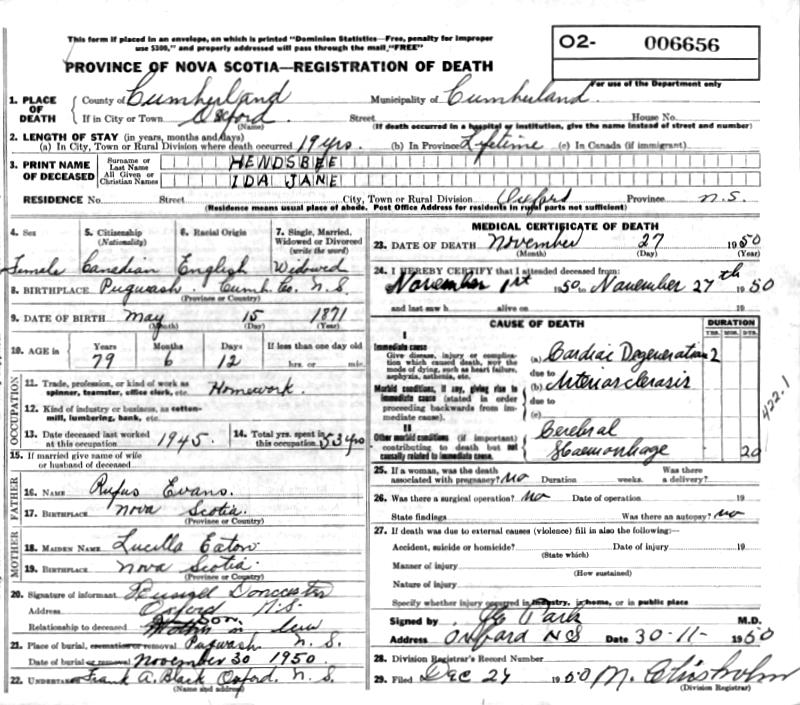 This form if placed in an envelope, on which is printed "Dominion Statistics—Free, penalty for improper
use $300," and properly addressed will pass through the mail, "FREE"
O2- 006656
PROVINCE OF NOVA SCOTIA—REGISTRATION OF DEATH
For use of the Department only
1. PLACE OF DEATH County of Cumberland Municipality of Cumberland
If in City or Town Oxford (Name) Street House No.
(If death occurred in a hospital or institution, give the name instead of street and number)
2. LENGTH OF STAY (in years, months and days)
(a) In City, Town or Rural Division where death occurred 19 yrs. (b) In Province Lifetime (c) In Canada (if immigrant)
3. PRINT NAME OF DECEASED Surname or Last Name HENDSBEE
All Given or Christian Names IDA JANE
RESIDENCE No. Street City, Town or Rural Division Oxford Province N.S.
(Residence means usual place of abode. Post Office Address for residents in rural parts not sufficient)
4. Sex 5. Citizenship (Nationality) 6. Racial Origin 7. Single, Married, Widowed or Divorced (write the word)
Female Canadian English Widowed
8. BIRTHPLACE Pugwash Cumb. Co. N.S.
(Province or Country)
9. DATE OF BIRTH May 15 1871
(Month) (Day) (Year)
10. AGE in Years Months Days If less than one day old
79 6 12 hrs. or min.
OCCUPATION
11. Trade, profession, or kind of work as spinner, teamster, office clerk, etc. Homework.
12. Kind of industry or business, as cotton-mill, lumbering, bank, etc.
13. Date deceased last worked at this occupation 1945. 14. Total yrs. spent in this occupation 53 yrs
15. If married give name of wife or husband of deceased
FATHER
16. NAME Rufus Evans.
17. BIRTHPLACE Nova Scotia.
(Province or Country)
MOTHER
18. MAIDEN NAME Lucilla Eaton
19. BIRTHPLACE Nova Scotia.
(Province or Country)
20. Signature of informant Doncaster
Address Oxford N.S.
Relationship to deceased Son in law
21. Place of burial, cremation or removal Pugwash N.S.
Date of burial or removal November 30 1950.
22. UNDERTAKER Frank A. Black Oxford. N.S.
(Name and address)
MEDICAL CERTIFICATE OF DEATH
23. DATE OF DEATH November 27 1950
(Month) (Day) (Year)
24. I HEREBY CERTIFY that I attended deceased from:
November 1st 1950 to November 27th 1950
and last saw h alive on 19
CAUSE OF DEATH DURATION
YRS. MOS. DYS.
I
Immediate cause
Give disease, injury or complication which caused death, not the mode of dying, such as heart failure, asphyxia, asthenia, etc.
(a) Cardiac Degeneration 2
due to
Morbid conditions, if any, giving rise to immediate cause (stated in order proceeding backwards from immediate cause).
(b) Arteriosclerosis
due to
(c)
422.1
II
Other morbid conditions (if important) contributing to death but not causally related to immediate cause.
Cerebral
Haemorrhage 20
25. If a woman, was the death associated with pregnancy? No Duration weeks. Was there a delivery?
26. Was there a surgical operation? No Date of operation 19
State findings Was there an autopsy? No
27. If death was due to external causes (violence) fill in also the following:—
Accident, suicide or homicide? Date of injury 19
(State which)
Manner of injury
(How sustained)
Nature of injury
Specify whether injury occurred in industry, in home, or in public place
Signed by M.D.
Address Oxford N S Date 30-11- 1950
28. Division Registrar's Record Number
29. Filed Dec 27 1950 M. Chisholm
(Division Registrar)